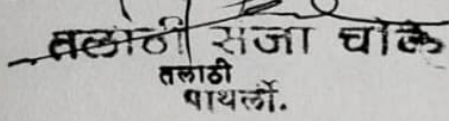 तलाठी सजा घोळे
तलाठी
पाथर्ली.